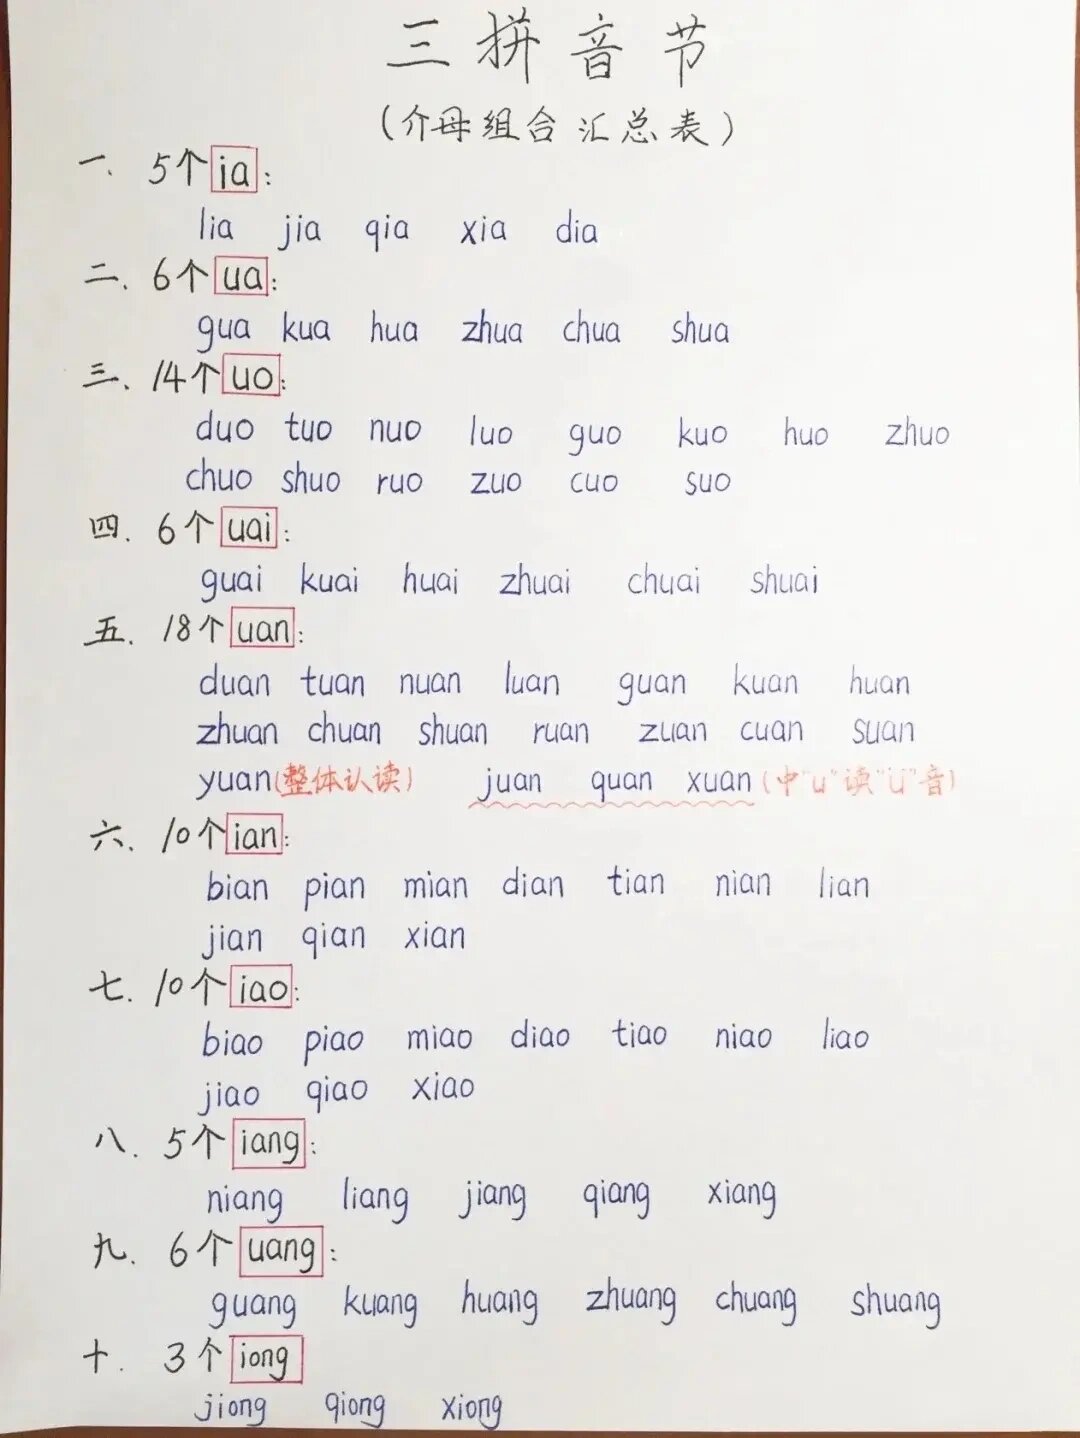 三拼音节
(介母组合汇总表)
一. 5个ia:
lia jia qia xia dia
二. 6个ua:
gua kua hua zhua chua shua
三. 14个uo:
duo tuo nuo luo guo kuo huo zhuo
chuo shuo ruo zuo cuo suo
四. 6个uai:
guai kuai huai zhuai chuai shuai
五. 18个uan:
duan tuan nuan luan guan kuan huan
zhuan chuan shuan ruan zuan cuan suan
yuan(整体认读) juan quan xuan(中"u"读"ü"音)
六. 10个ian:
bian pian mian dian tian nian lian
jian qian xian
七. 10个iao:
biao piao miao diao tiao niao liao
jiao qiao xiao
八. 5个iang:
niang liang jiang qiang xiang
九. 6个uang:
guang kuang huang zhuang chuang shuang
十. 3个iong
jiong qiong xiong